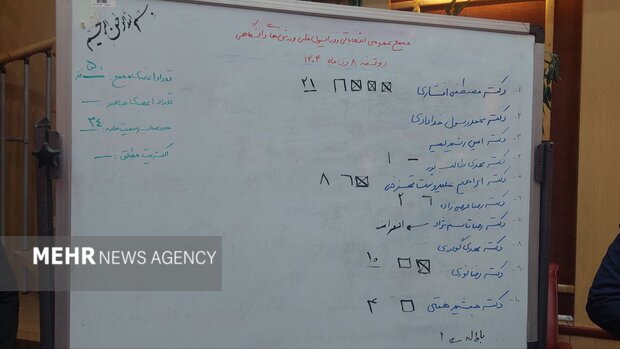 بسم الله الرحمن الرحیم
مجمع عمومی انتخاباتی فدراسیون ملی ورزش‌های دانشگاهی
دوشنبه ۸ دی ماه ۱۴۰۴
تعداد اعضای مجمع: ۵۰ نفر
تعداد اعضای حاضر:
حد نصاب رسمیت جلسه: ۳۴
اکثریت مطلق:
۱- دکتر مصطفی انصاری ۲۱
۲- دکتر محمدرسول خدادادی
۳- دکتر امین رشید
۴- دکتر مهدی طالب پور ۱
۵- دکتر ابراهیم علیدوست قهفرخی ۸
۶- دکتر رضا زاده ۲
۷- دکتر رضا قاسم نژاد انصراف
۸- دکتر مهدی گودرزی
۹- دکتر رضا نوری ۱۰
۱۰- دکتر جمشید همتی ۴
باطله ۱
MEHR NEWS AGENCY